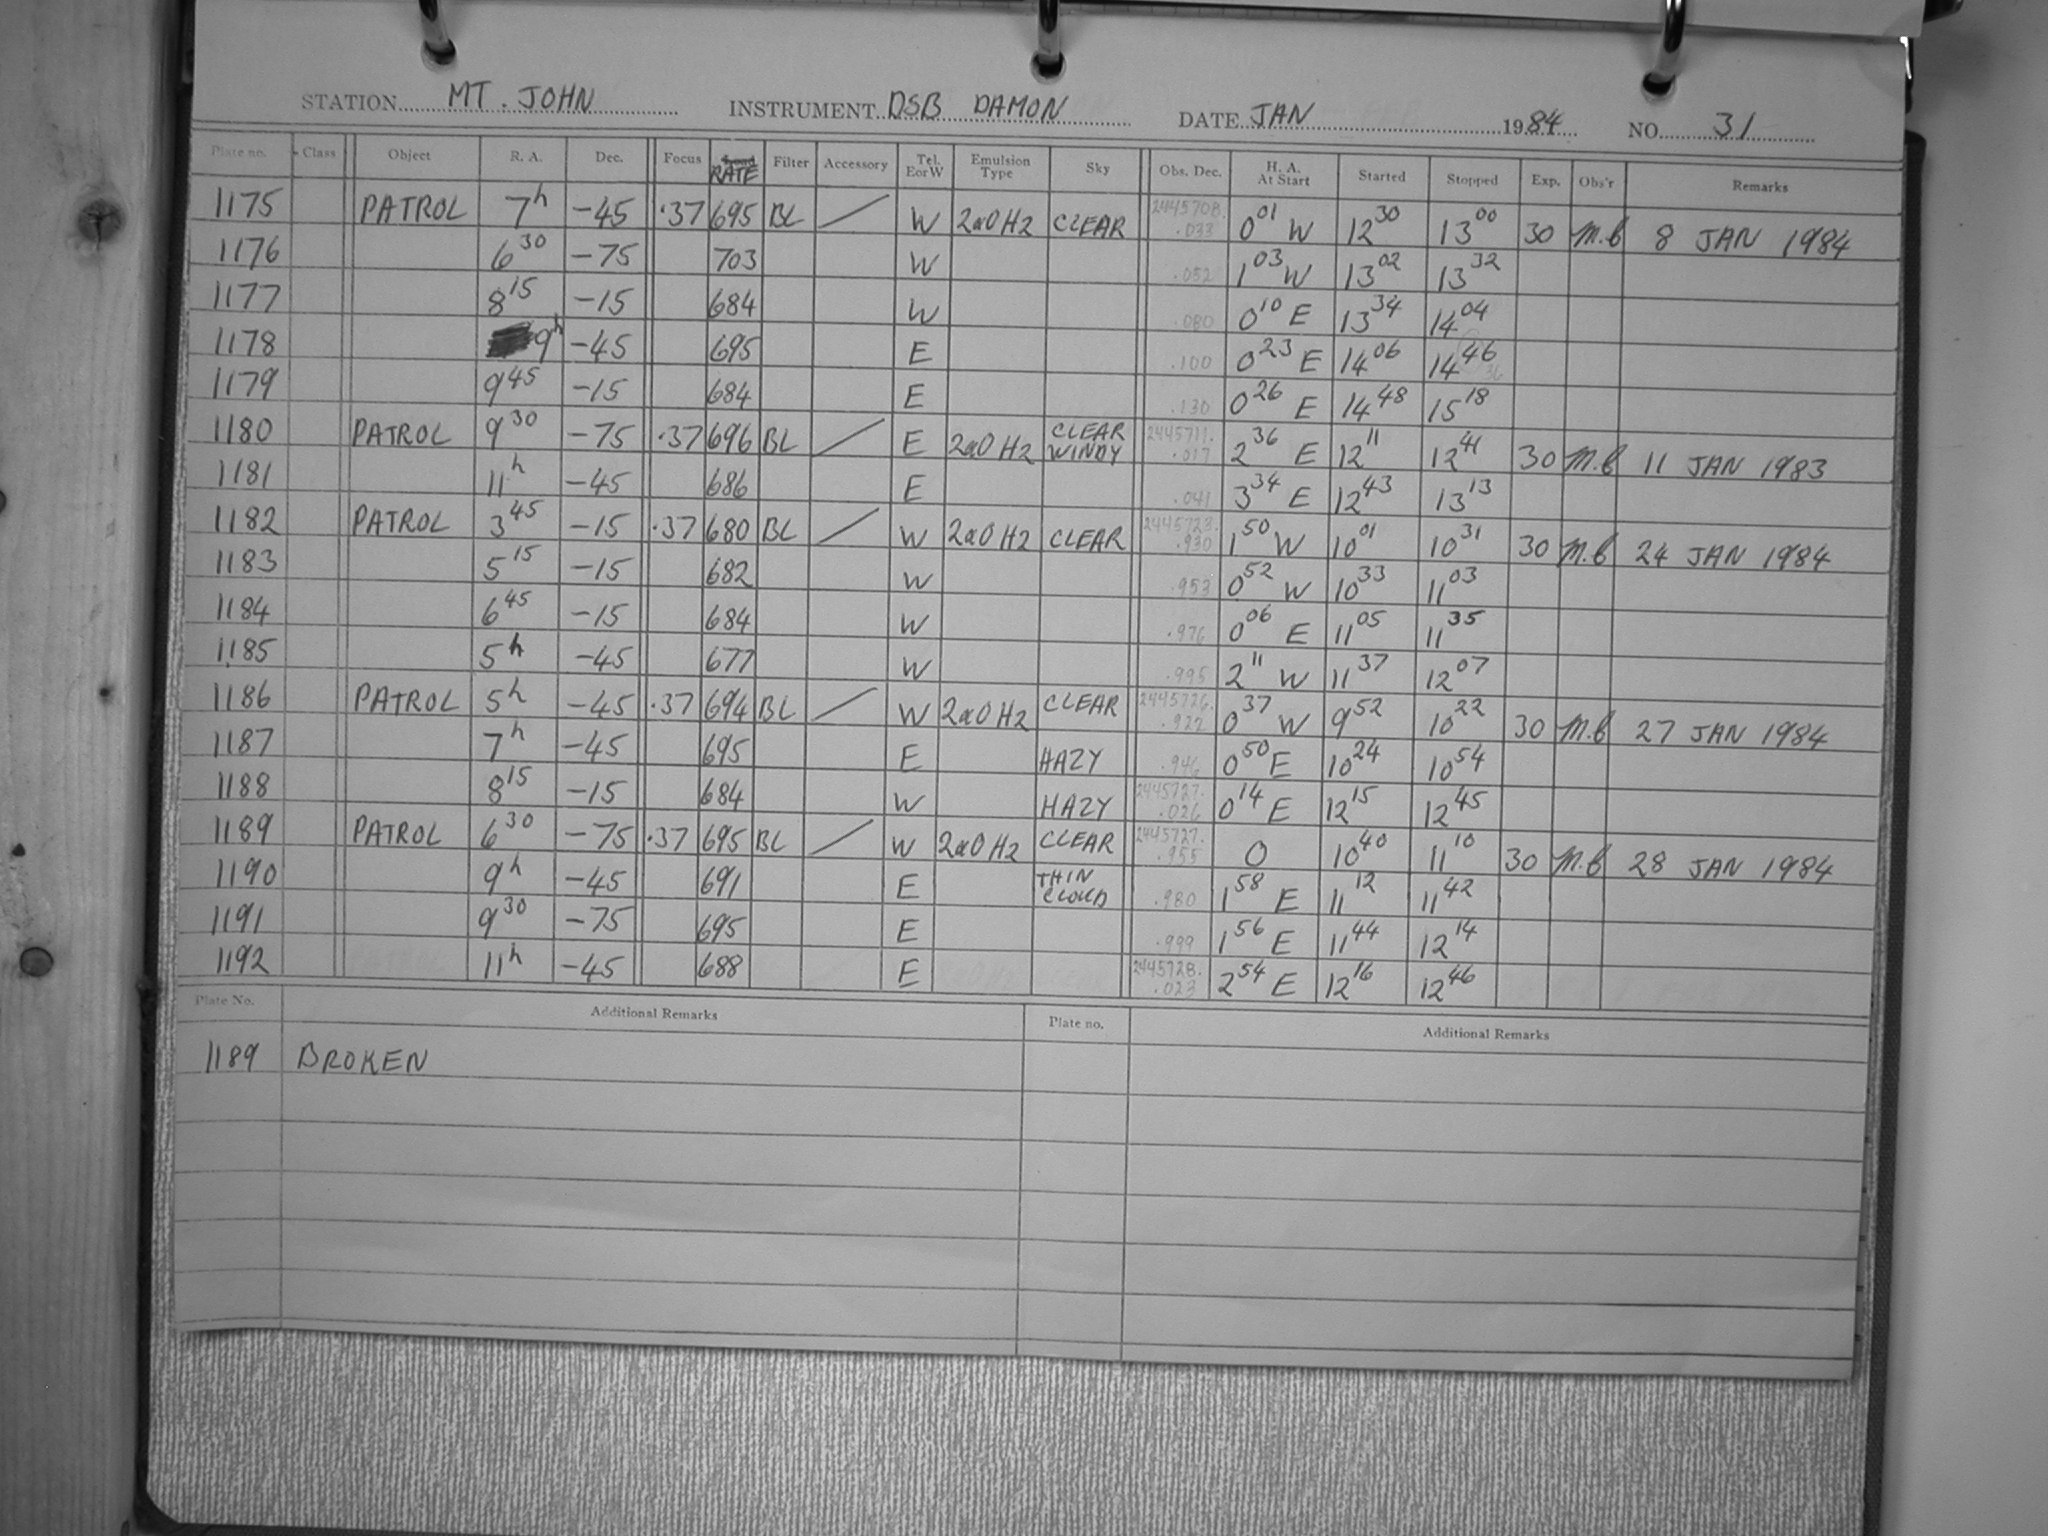 STATION MT. JOHN INSTRUMENT DSB DAMON DATE JAN 1984 NO. 31
Plate no. Class Object R. A. Dec. Focus RATE Filter Accessory Tel. EorW Emulsion Type Sky Obs. Dec. H. A. At Start Started Stopped Exp. Obs'r Remarks
1175 PATROL 7h -45 .37 695 BL / W 2aO H2 CLEAR 2445708. .033 0 01 W 12 30 13 00 30 M.B 8 JAN 1984
1176 6 30 -75 703 W .052 1 03 W 13 02 13 32
1177 8 15 -15 684 W .080 0 10 E 13 34 14 04
1178 9h -45 695 E .100 0 23 E 14 06 14 46 36
1179 9 45 -15 684 E .130 0 26 E 14 48 15 18
1180 PATROL 9 30 -75 .37 696 BL / E 2aO H2 CLEAR WINDY 2445711. .017 2 36 E 12 11 12 41 30 M.B 11 JAN 1983
1181 11h -45 686 E .041 3 34 E 12 43 13 13
1182 PATROL 3 45 -15 .37 680 BL / W 2aO H2 CLEAR 2445723. .930 1 50 W 10 01 10 31 30 M.B 24 JAN 1984
1183 5 15 -15 682 W .953 0 52 W 10 33 11 03
1184 6 45 -15 684 W .976 0 06 E 11 05 11 35
1185 5h -45 677 W .995 2 11 W 11 37 12 07
1186 PATROL 5h -45 .37 694 BL / W 2aO H2 CLEAR 2445726. .922 0 37 W 9 52 10 22 30 M.B 27 JAN 1984
1187 7h -45 695 E HAZY .946 0 50 E 10 24 10 54
1188 8 15 -15 684 W HAZY 2445727. .026 0 14 E 12 15 12 45
1189 PATROL 6 30 -75 .37 695 BL / W 2aO H2 CLEAR 2445727. .955 0 10 40 11 10 30 M.B 28 JAN 1984
1190 9h -45 691 E THIN CLOUD .980 1 58 E 11 12 11 42
1191 9 30 -75 695 E .999 1 56 E 11 44 12 14
1192 11h -45 688 E 2445728. .023 2 54 E 12 16 12 46
Plate No. Additional Remarks Plate no. Additional Remarks
1189 BROKEN